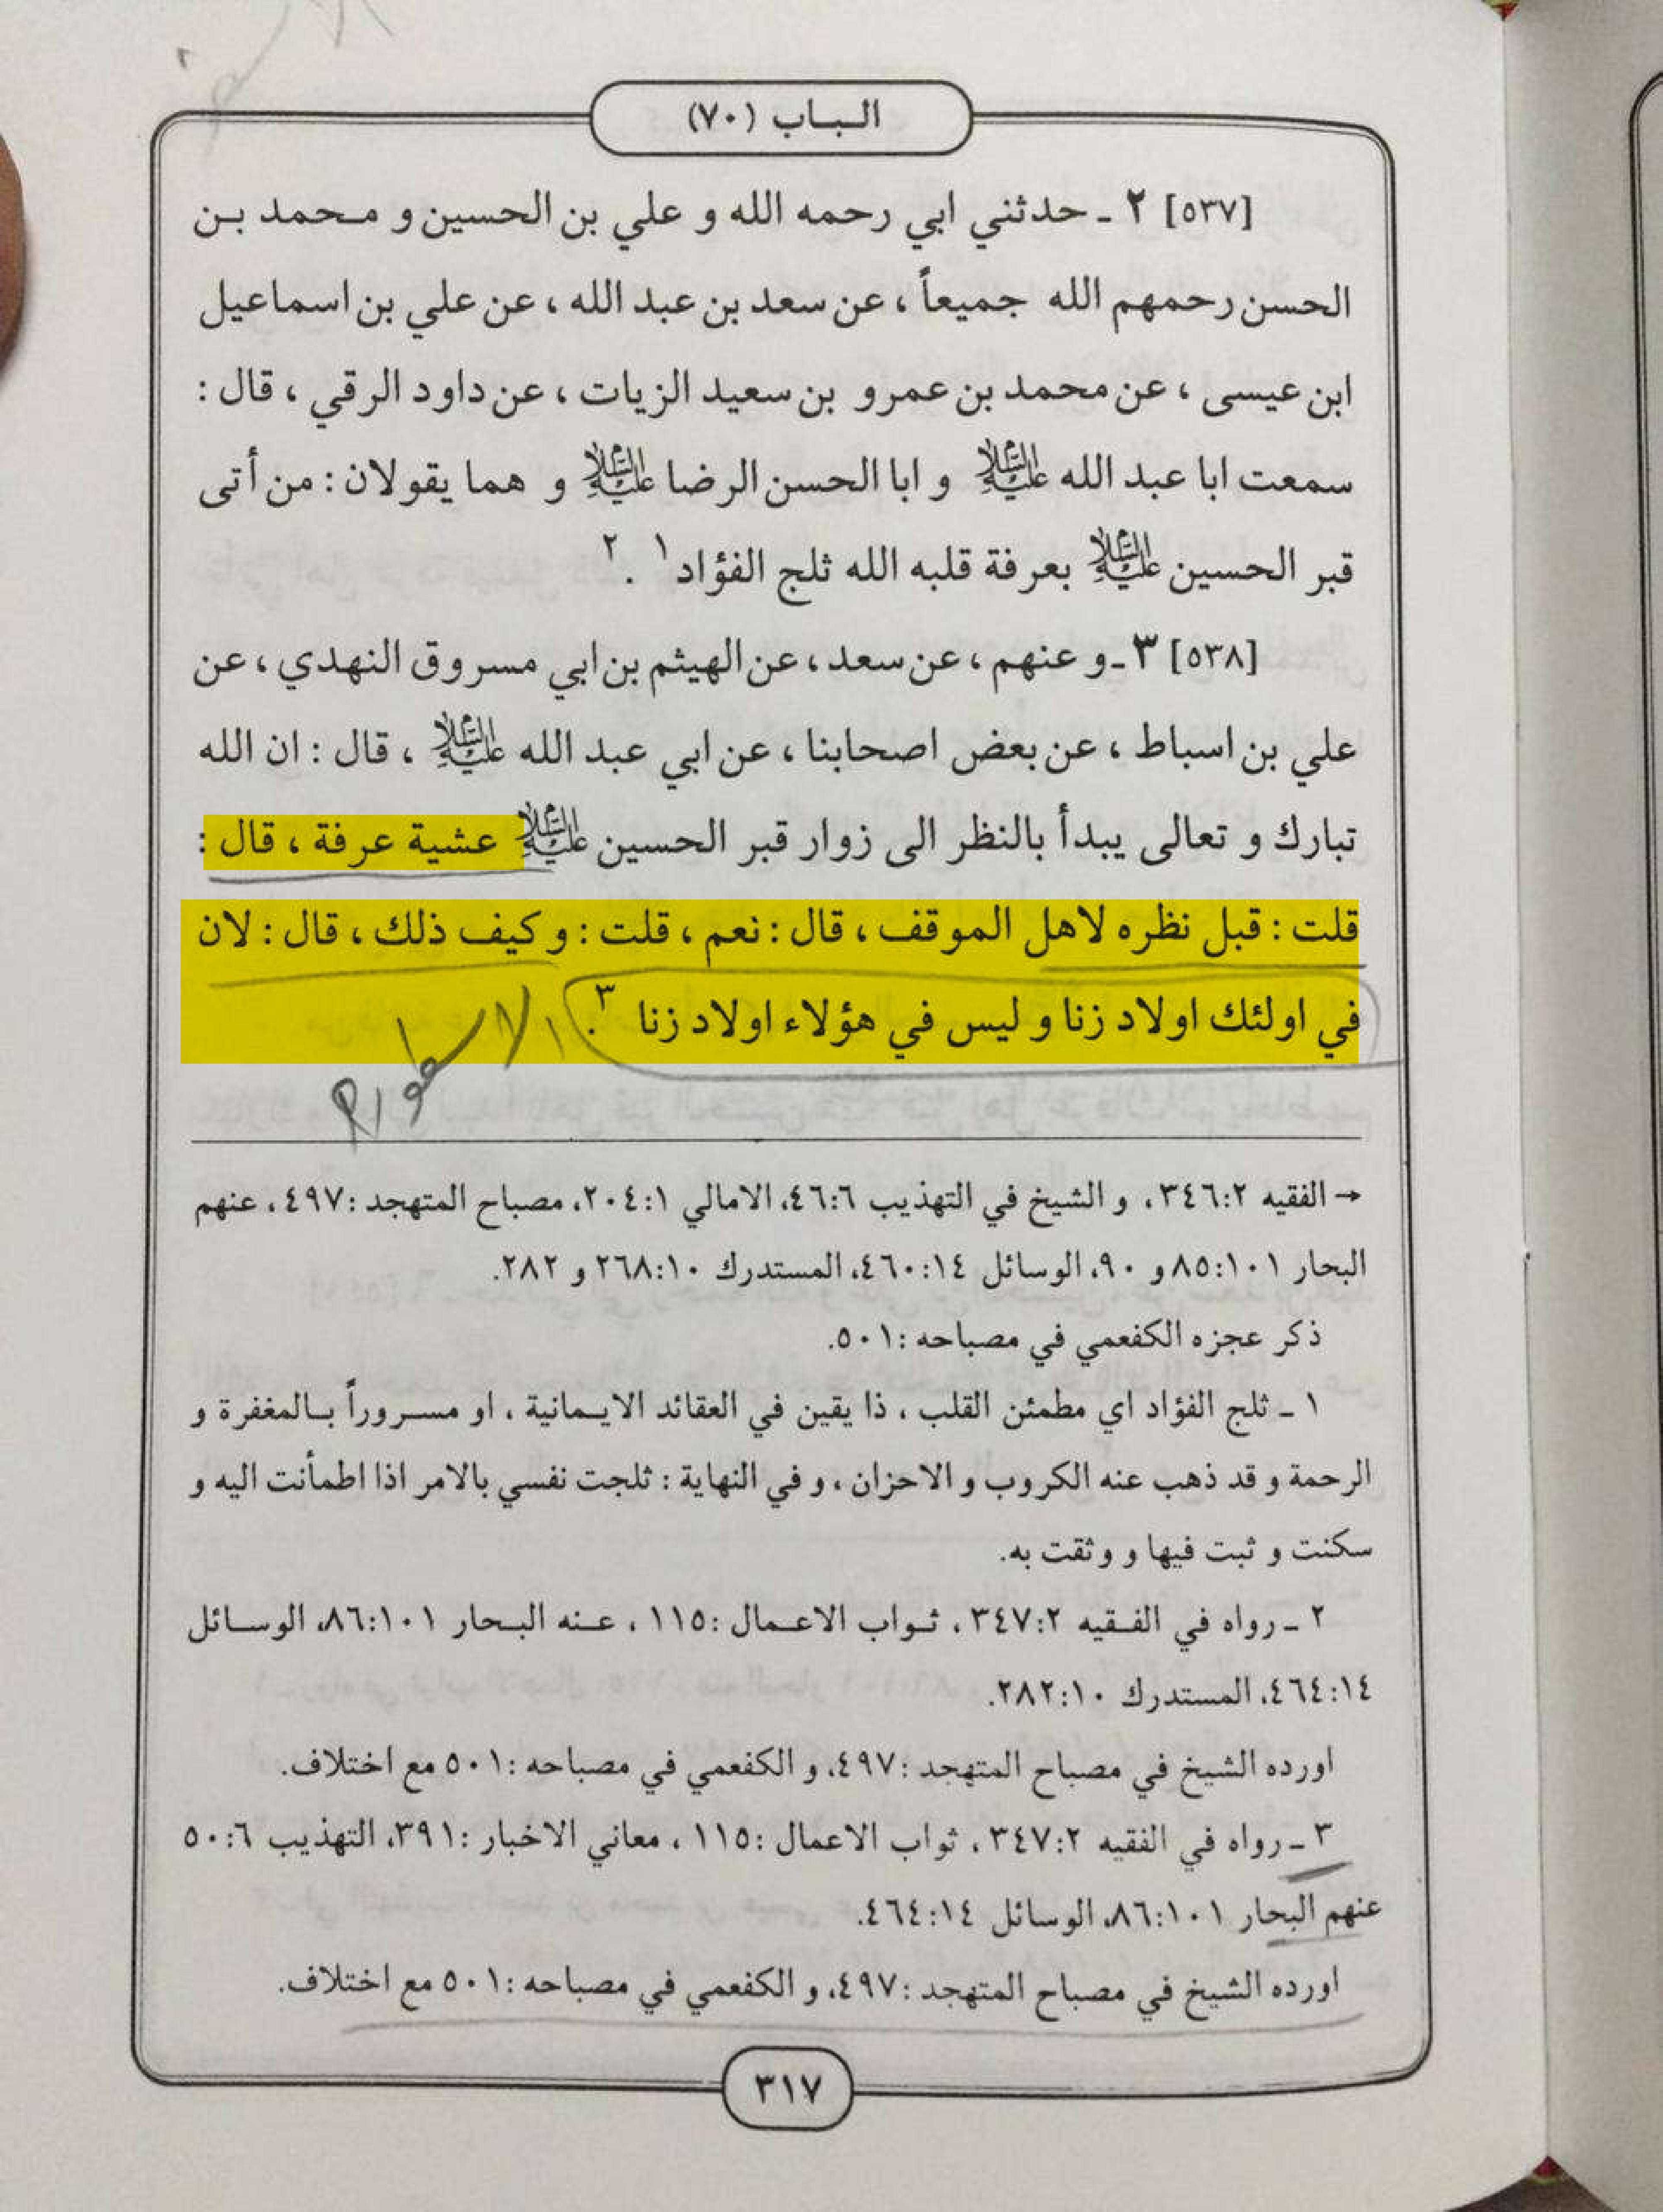 الباب (٧٠)
[٥٣٧] ٢ ـ حدثني ابي رحمه الله و علي بن الحسين و محمد بن
الحسن رحمهم الله جميعاً ، عن سعد بن عبد الله ، عن علي بن اسماعيل
ابن عيسى ، عن محمد بن عمرو بن سعيد الزيات ، عن داود الرقي ، قال :
سمعت ابا عبد الله عليه السلام و ابا الحسن الرضا عليه السلام و هما يقولان : من أتى
قبر الحسين عليه السلام بعرفة قلبه الله ثلج الفؤاد ١ . ٢
[٥٣٨] ٣ ـ و عنهم ، عن سعد ، عن الهيثم بن ابي مسروق النهدي ، عن
علي بن اسباط ، عن بعض اصحابنا ، عن ابي عبد الله عليه السلام ، قال : ان الله
تبارك و تعالى يبدأ بالنظر الى زوار قبر الحسين عليه السلام عشية عرفة ، قال :
قلت : قبل نظره لاهل الموقف ، قال : نعم ، قلت : و كيف ذلك ، قال : لان
في اولئك اولاد زنا و ليس في هؤلاء اولاد زنا ٣ .
→ الفقيه ٣٤٦:٢ ، و الشيخ في التهذيب ٤٦:٦، الامالي ٢٠٤:١، مصباح المتهجد :٤٩٧ ، عنهم
البحار ٨٥:١٠١ و ٩٠، الوسائل ٤٦٠:١٤، المستدرك ٢٦٨:١٠ و ٢٨٢.
ذكر عجزه الكفعمي في مصباحه :٥٠١.
١ ـ ثلج الفؤاد اي مطمئن القلب ، ذا يقين في العقائد الايمانية ، او مسروراً بالمغفرة و
الرحمة و قد ذهب عنه الكروب و الاحزان ، و في النهاية : ثلجت نفسي بالامر اذا اطمأنت اليه و
سكنت و ثبت فيها و وثقت به.
٢ ـ رواه في الفقيه ٣٤٧:٢ ، ثواب الاعمال :١١٥ ، عنه البحار ٨٦:١٠١، الوسائل
٤٦٤:١٤، المستدرك ٢٨٢:١٠.
اورده الشيخ في مصباح المتهجد :٤٩٧، و الكفعمي في مصباحه :٥٠١ مع اختلاف.
٣ ـ رواه في الفقيه ٣٤٧:٢ ، ثواب الاعمال :١١٥ ، معاني الاخبار :٣٩١، التهذيب ٥٠:٦
عنهم البحار ٨٦:١٠١، الوسائل ٤٦٤:١٤.
اورده الشيخ في مصباح المتهجد :٤٩٧، و الكفعمي في مصباحه :٥٠١ مع اختلاف.
٣١٧